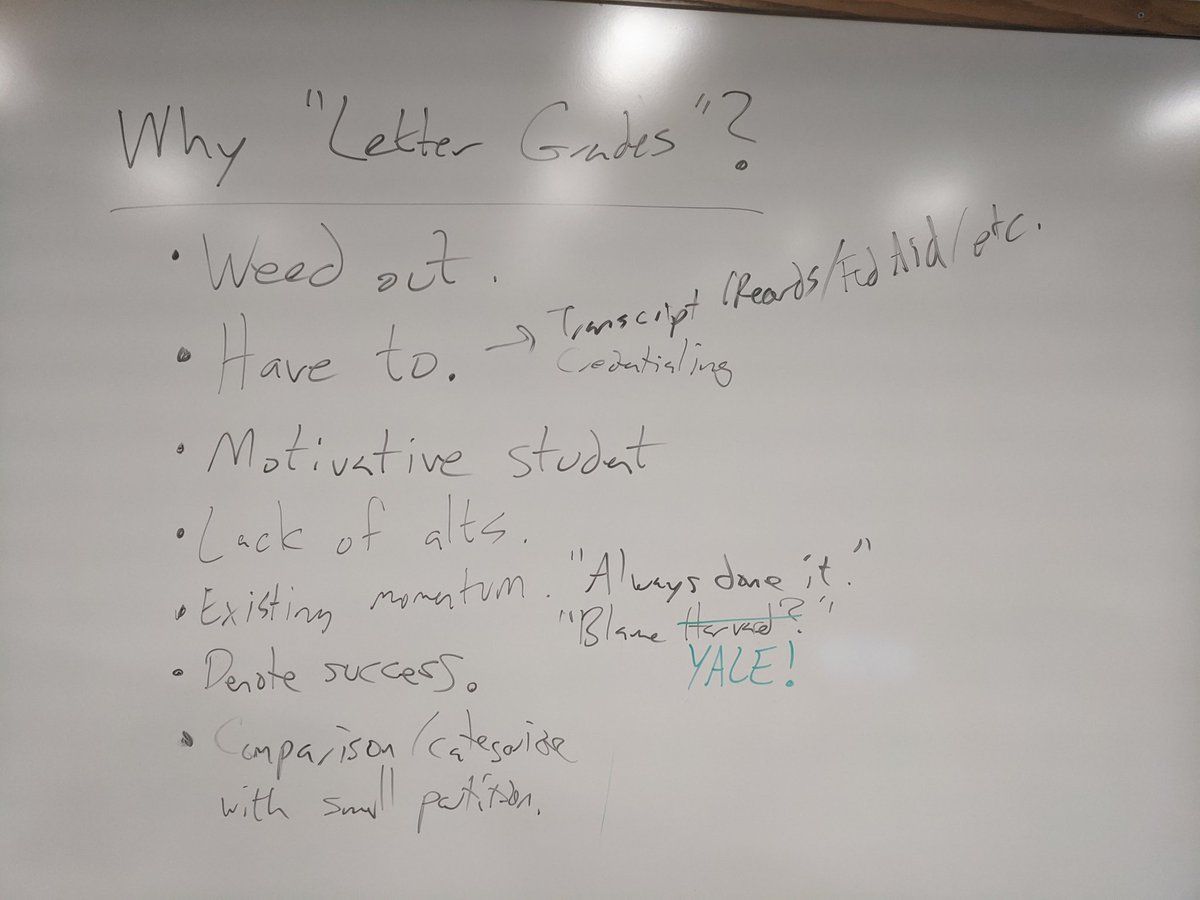 Why "Letter Grades"?
• Weed out.
• Have to. → Transcript /Records/Fed Aid/etc.
Credentialing
• Motivative student
• Lack of alts.
• Existing momentum. "Always done it."
"Blame Harvard?"
YALE!
• Denote success.
• Comparison/categorize
with small partition.